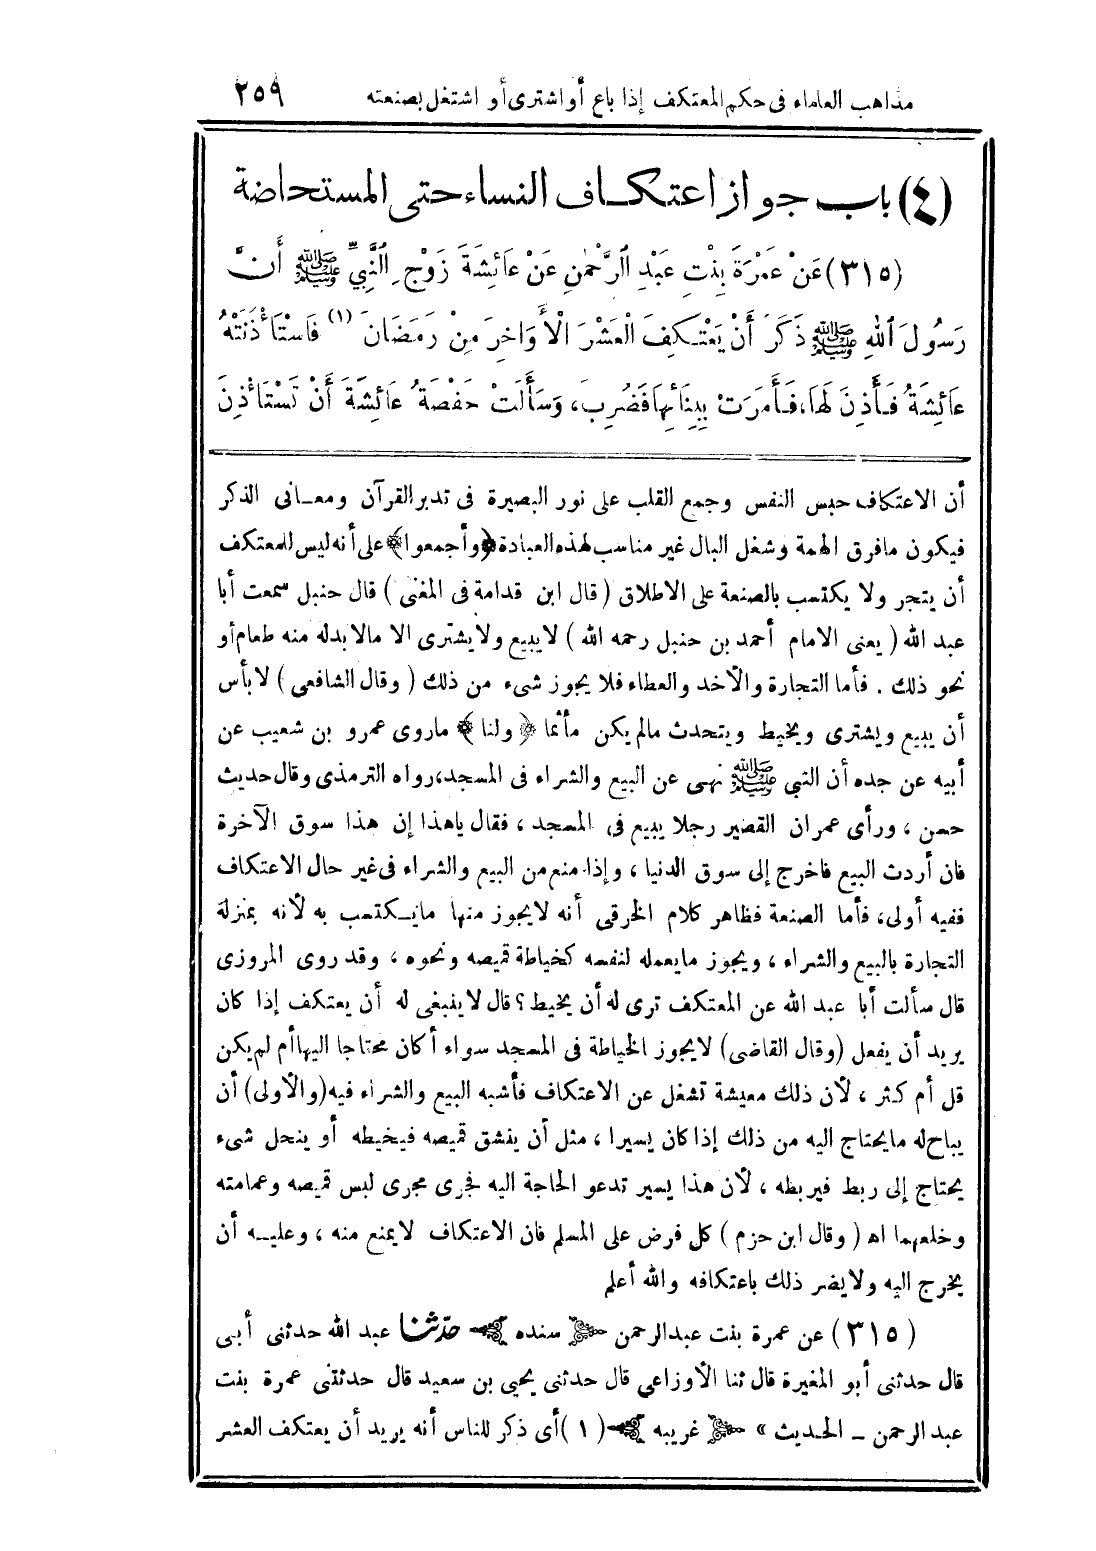 مذاهب العلماء فى حكم المعتكف إذا باع أو اشترى أو اشتغل بصنعته ٢٥٩
(٤) باب جواز اعتكاف النساء حتى المستحاضة
(٣١٥) عَنْ عَمْرَةَ بِنْتِ عَبْدِ الرَّحْمٰنِ عَنْ عَائِشَةَ زَوْجِ النَّبِيِّ ﷺ أَنَّ
رَسُولَ اللهِ ﷺ ذَكَرَ أَنْ يَعْتَكِفَ الْعَشْرَ الْأَوَاخِرَ مِنْ رَمَضَانَ (١) فَاسْتَأْذَنَتْهُ
عَائِشَةُ فَأَذِنَ لَهَا، فَأَمَرَتْ بِبِنَائِهَا فَضُرِبَ، وَسَأَلَتْ حَفْصَةُ عَائِشَةَ أَنْ تَسْتَأْذِنَ
أن الاعتكاف حبس النفس وجمع القلب على نور البصيرة فى تدبر القرآن ومعانى الذكر
فيكون مافرق الهمة وشغل البال غير مناسب لهذه العبادة ﴿وأجمعوا﴾ على أنه ليس للمعتكف
أن يتجر ولا يكتسب بالصنعة على الاطلاق (قال ابن قدامة فى المغنى) قال حنبل سمعت أبا
عبد الله (يعنى الامام أحمد بن حنبل رحمه الله) لايبيع ولايشترى الا مالابدله منه طعام أو
نحو ذلك . فأما التجارة والأخد والعطاء فلا يجوز شىء من ذلك (وقال الشافعى) لابأس
أن يبيع ويشترى ويخيط ويتحدث مالم يكن مأثما ﴿ولنا﴾ ماروى عمرو بن شعيب عن
أبيه عن جده أن النبى ﷺ نهى عن البيع والشراء فى المسجد، رواه الترمذى وقال حديث
حسن ، ورأى عمران القصير رجلا يبيع فى المسجد ، فقال ياهذا إن هذا سوق الآخرة
فان أردت البيع فاخرج إلى سوق الدنيا ، وإذا منع من البيع والشراء فى غير حال الاعتكاف
ففيه أولى، فأما الصنعة فظاهر كلام الخرقى أنه لايجوز منها مايكتسب به لأنه بمنزلة
التجارة بالبيع والشراء ، ويجوز مايعمله لنفسه كخياطة قميصه ونحوه ، وقد روى المروزى
قال سألت أبا عبد الله عن المعتكف ترى له أن يخيط ؟ قال لاينبغى له أن يعتكف إذا كان
يريد أن يفعل (وقال القاضى) لايجوز الخياطة فى المسجد سواء أكان محتاجا اليها أم لم يكن
قل أم كثر ، لأن ذلك معيشة تشغل عن الاعتكاف فأشبه البيع والشراء فيه (والأولى) أن
يباح له مايحتاج اليه من ذلك إذا كان يسيرا ، مثل أن ينشق قميصه فيخيطه أو ينحل شىء
يحتاج إلى ربط فيربطه ، لأن هذا يسير تدعو الحاجة اليه فجرى مجرى لبس قميصه وعمامته
وخلعهما اه (وقال ابن حزم) كل فرض على المسلم فان الاعتكاف لايمنع منه ، وعليه أن
يخرج اليه ولايضر ذلك باعتكافه والله أعلم
(٣١٥) عن عمرة بنت عبدالرحمن ﴿ سنده ﴾ حدّثنا عبد الله حدثنى أبى
قال حدثنى أبو المغيرة قال ثنا الأوزاعى قال حدثنى يحيى بن سعيد قال حدثتنى عمرة بنت
عبد الرحمن ــ الحديث » ﴿ غريبه ﴾ (١) أى ذكر للناس أنه يريد أن يعتكف العشر